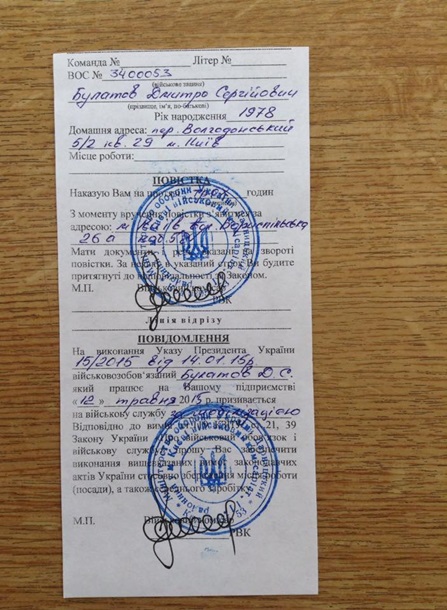 Команда № Літер №
ВОС № 3400053
(військове звання)
Булатов Дмитро Сергійович
(прізвище, ім'я, по-батькові)
Рік народження 1978
Домашня адреса: пер. Волгодонський
5/2 кв. 29 м. Київ
Місце роботи:
ПОВІСТКА
Наказую Вам на годин
З моменту вручення повістки з'явитися за
адресою: м. Київ вул. Бориспільська
26а
Мати документи і речі, вказані на звороті
повістки. За неявку в указаний строк Ви будете
притягнуті до відповідальності за Законом.
М.П.
РВК
Лінія відрізу
ПОВІДОМЛЕННЯ
На виконання Указу Президента України
15/2015 від 14.01.15р
військовозобов'язаний Булатов Д.С.
який працює на Вашому підприємстві
«12» травня 2015 р. призивається
на військову службу за мобілізацією
Відповідно до 21, 39
Закону України "Про військовий обов'язок і
військову службу" прошу Вас забезпечити
виконання вимог законодавчих
актів України стосовно збереження місця роботи
(посади), а також середнього заробітку.
М.П.
РВК